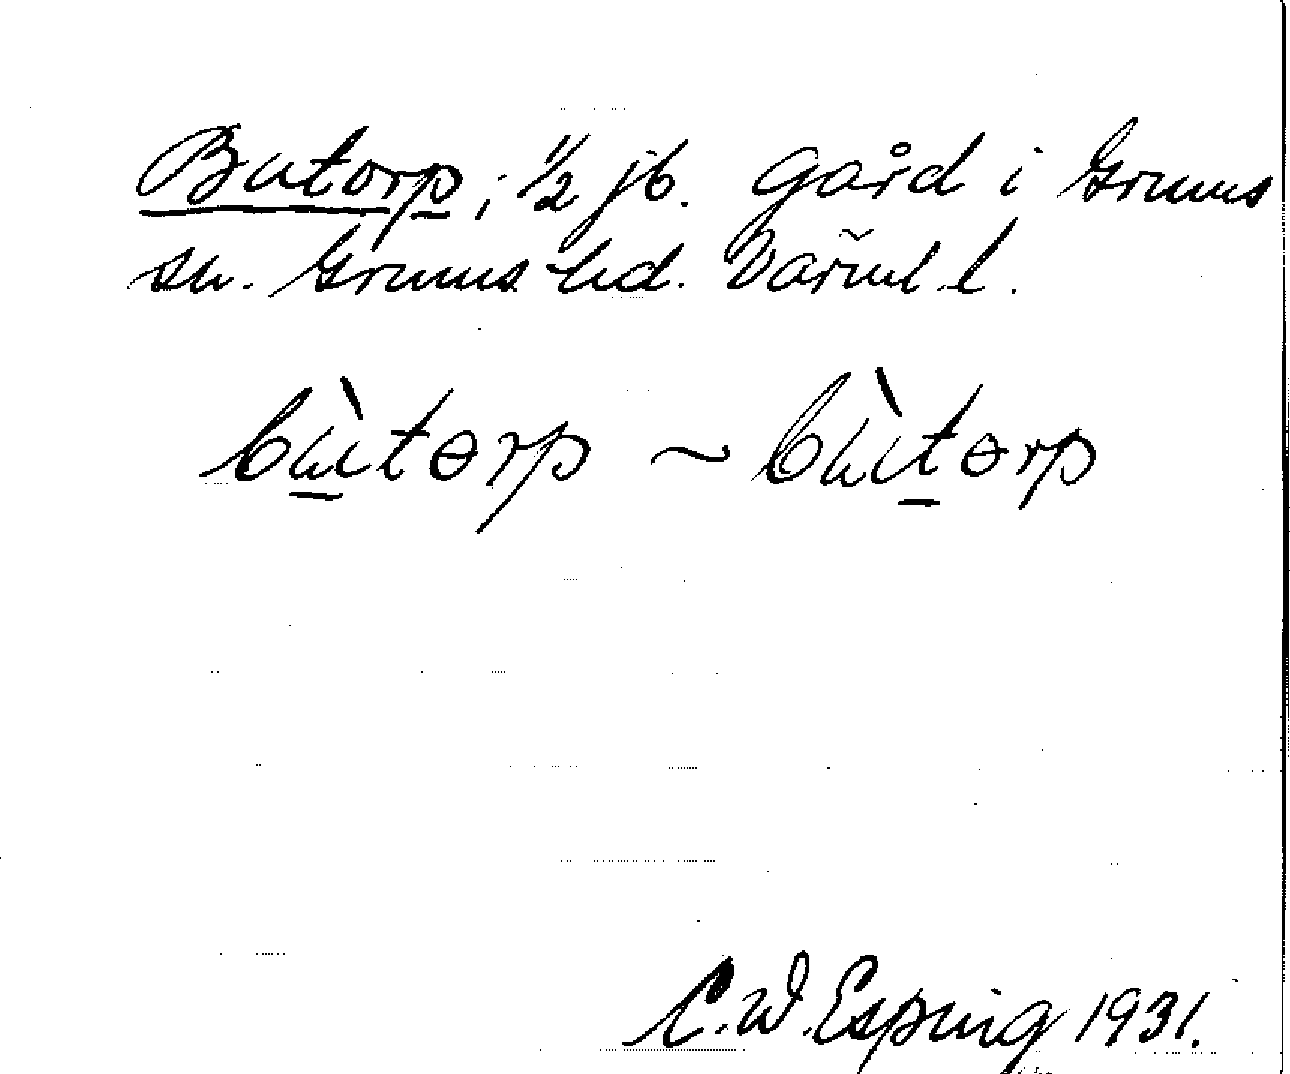 Butorp, ½ jb. gård i Grums
sn. Grums hd. Värml l.
bù̲tɵrp ~ bùt̲ɵrp
C. W. Esping 1931.